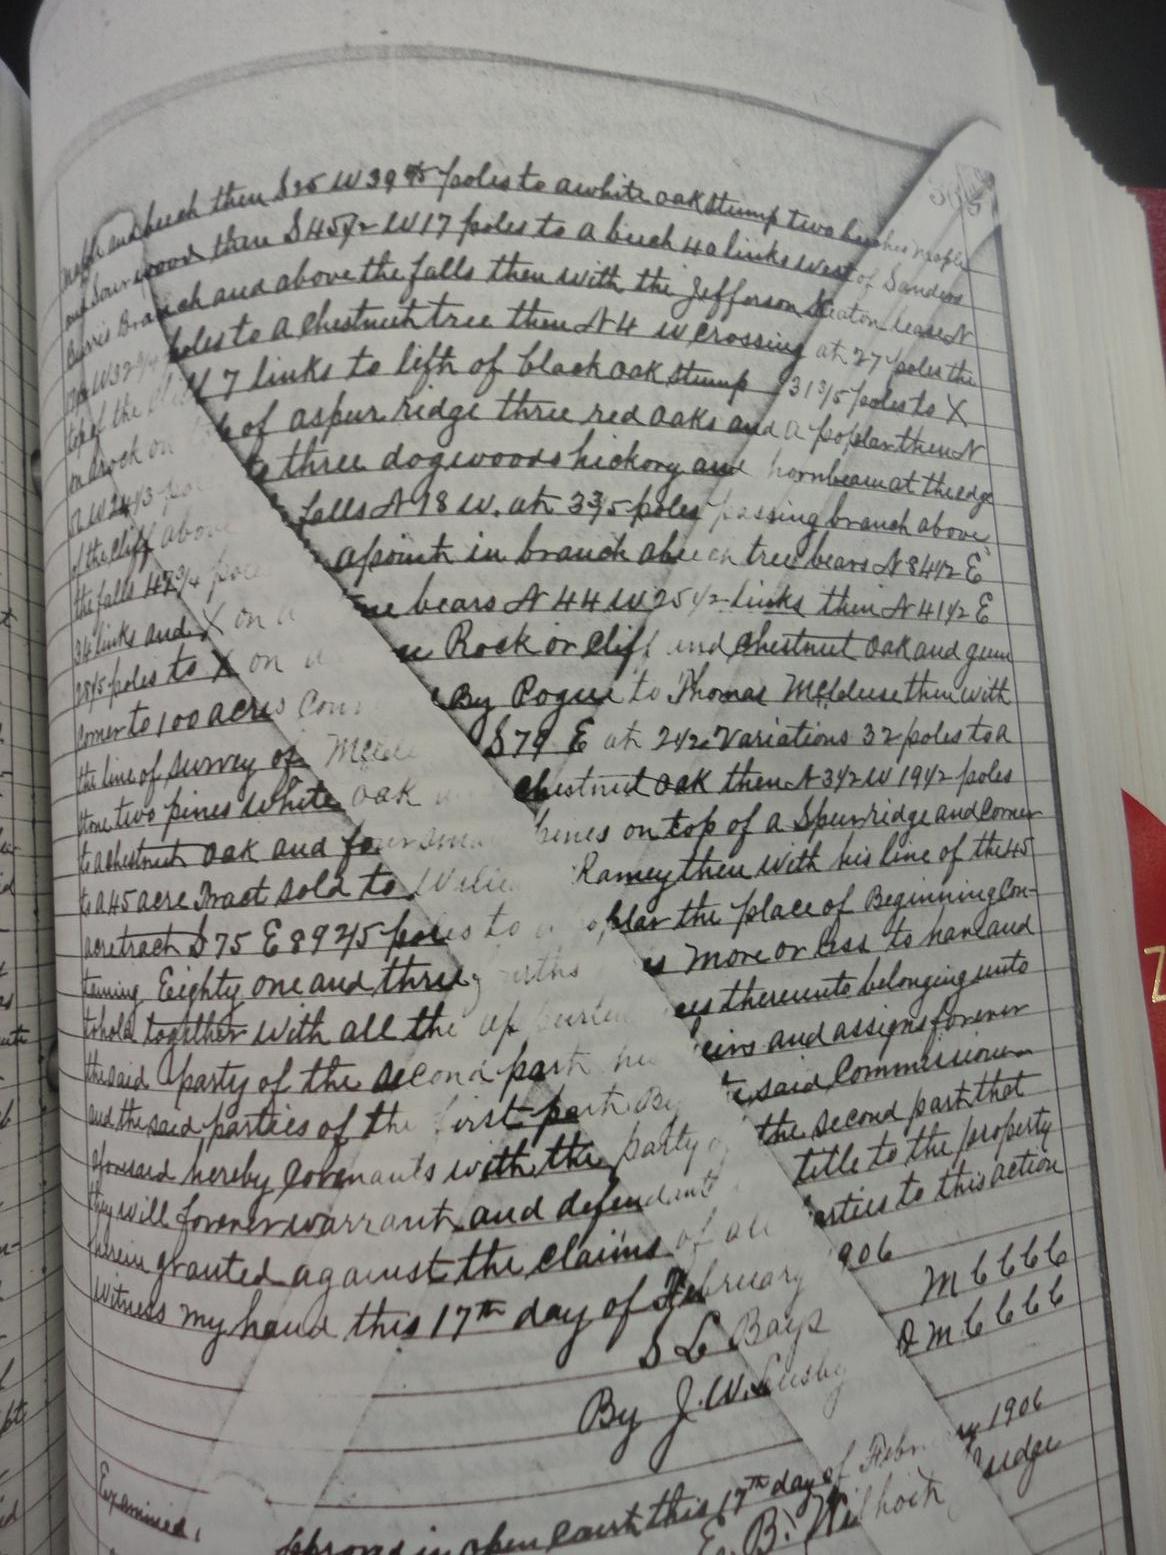 maple and beech then S 25 W 39 poles to a white oak stump two beeches maple
and Sourwood then S 45 1/2 W 17 poles to a beech 40 links West of Sanders
Burris Branch and above the falls then with the Jefferson Keaton lease N
W 32 poles to a chestnut tree then N 4 W crossing at 27 poles the
top of the Cliff 7 links to left of black oak stump 31 3/5 poles to X
on a rock on top of a spur ridge three red oaks and a poplar then N
W 24 to three dogwoods hickory and hornbeam at the edge
of the cliff above falls N 18 W. at 33/5 poles passing branch above
the falls 47 3/4 poles a point in branch a beech tree bears N 84 1/2 E
34 links and X on a bears N 44 W 25 1/2 links then N 41 1/2 E
28/5 poles to X on a Rock or Cliff and chestnut oak and gum
Corner to 100 acres By Pogue to Thomas then with
the line of survey of S 79 E at 2 1/2 Variations 32 poles to a
stone two pines White oak chestnut oak then N 3 1/2 W 19 1/2 poles
to a chestnut oak and four small pines on top of a Spur ridge and corner
to a 45 acre Tract sold to Ramey then with his line of the 45
acre tract S 75 E 89 2/5 poles to a poplar the place of Beginning Con-
taining Eighty one and three more or less to have and
to hold together with all the thereunto belonging unto
the said party of the second part heirs and assigns forever
and the said parties of the first part By the said Commissioner
aforesaid hereby Covenants with the party of the second part that
they will forever warrant and defend title to the property
herein granted against the claims of all parties to this action
witness my hand this 17th day of February 906
S L Bays M C C C C
By J. W. D M C C C C
Examined,
approved in open Court this 17th day of February 1906
E. B. Wilhoit Judge